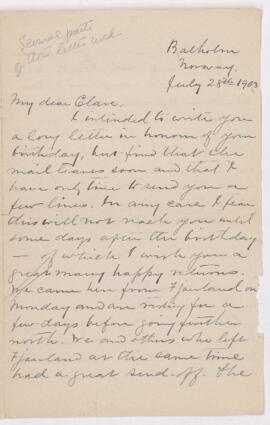 Several parts
of this letter
Balholm
Norway.
July 28th 1903
My dear Clare.
I intended to write you
a long letter in honour of your
birthday, but find that the
mail leaves soon and that I
have only time to send you a
few lines. In any case I fear
this will not reach you until
some days after the birthday
— of which I wish you a
great many happy returns.
We came here from Fjaerland on
Monday and are resting for a
few days before going further
north. We and others who left
Fjaerland at the same time
had a great send-off. The